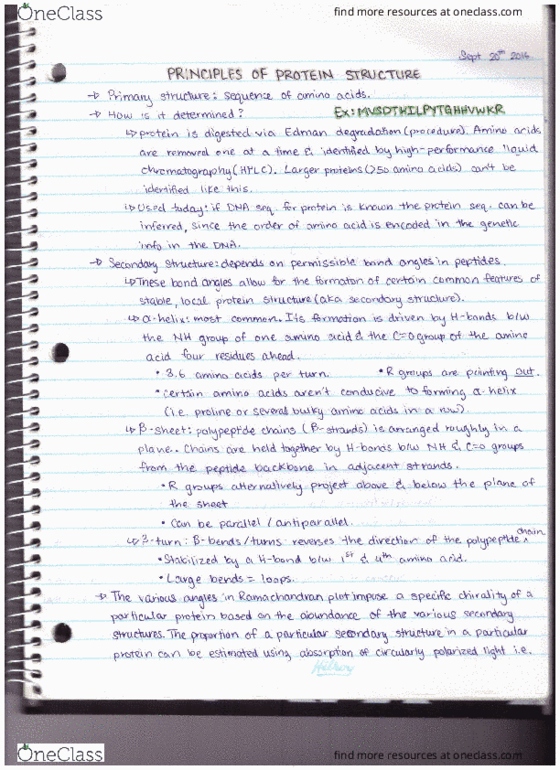 OneClass
find more resources at oneclass.com
Sept 20th 2016
PRINCIPLES OF PROTEIN STRUCTURE
→ Primary structure: sequence of amino acids.
→ How is it determined? Ex: MVSDTHILPYTGHHVWKR
↳ protein is digested via Edman degradation (procedure). Amino acids
are removed one at a time & identified by high-performance liquid
chromatography (HPLC). Larger proteins (>50 amino acids) can't be
identified like this.
↳ Used today: if DNA seq. for protein is known the protein seq. can be
inferred, since the order of amino acid is encoded in the genetic
info in the DNA.
→ Secondary structure: depends on permissible bond angles in peptides.
↳ These bond angles allow for the formaton of certain common features of
stable, local protein structure (aka secondary structure).
↳ α-helix: most common. Its formation is driven by H-bonds b/w
the NH group of one amino acid & the C=O group of the amino
acid four residues ahead.
• 3.6 amino acids per turn. • R groups are pointing out.
• certain amino acids aren't conducive to forming α-helix
(i.e. proline or several bulky amino acids in a row).
↳ β-sheet: polypeptide chains (β-strands) is arranged roughly in a
plane. Chains are held together by H-bonds b/w NH & C=O groups
from the peptide backbone in adjacent strands.
• R groups alternatively project above & below the plane of
the sheet
• Can be parallel / antiparallel.
↳ β-turn: β-bends/turns reverses the direction of the polypeptide chain.
• Stabilized by a H-bond b/w 1st & 4th amino acid.
• Large bends = loops.
→ The various angles in Ramachandran plot impose a specific chirality of a
particular protein based on the abundance of the various secondary
structures. The proportion of a particular secondary structure in a particular
protein can be estimated using absorption of circularly polarized light i.e.
Hilroy
OneClass
find more resources at oneclass.com